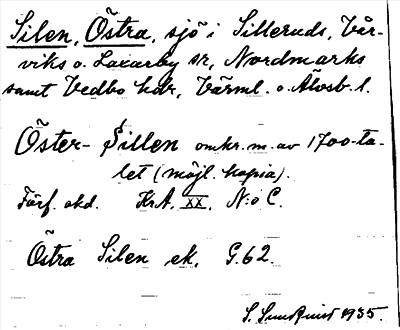 Silen, Östra, sjö i Silleruds, Vår-
viks o. Laxarby sn, Nordmarks
samt Vedbo hdr, Värml. o. Älvsb. l.
Öster- Sillen omkr. m. av 1700-ta-
let (möjl. kopia).
Förf. okd. Kr.A. XX. N:o C.
Östra Silen ek. G.62.
S. Sundquist 1935.